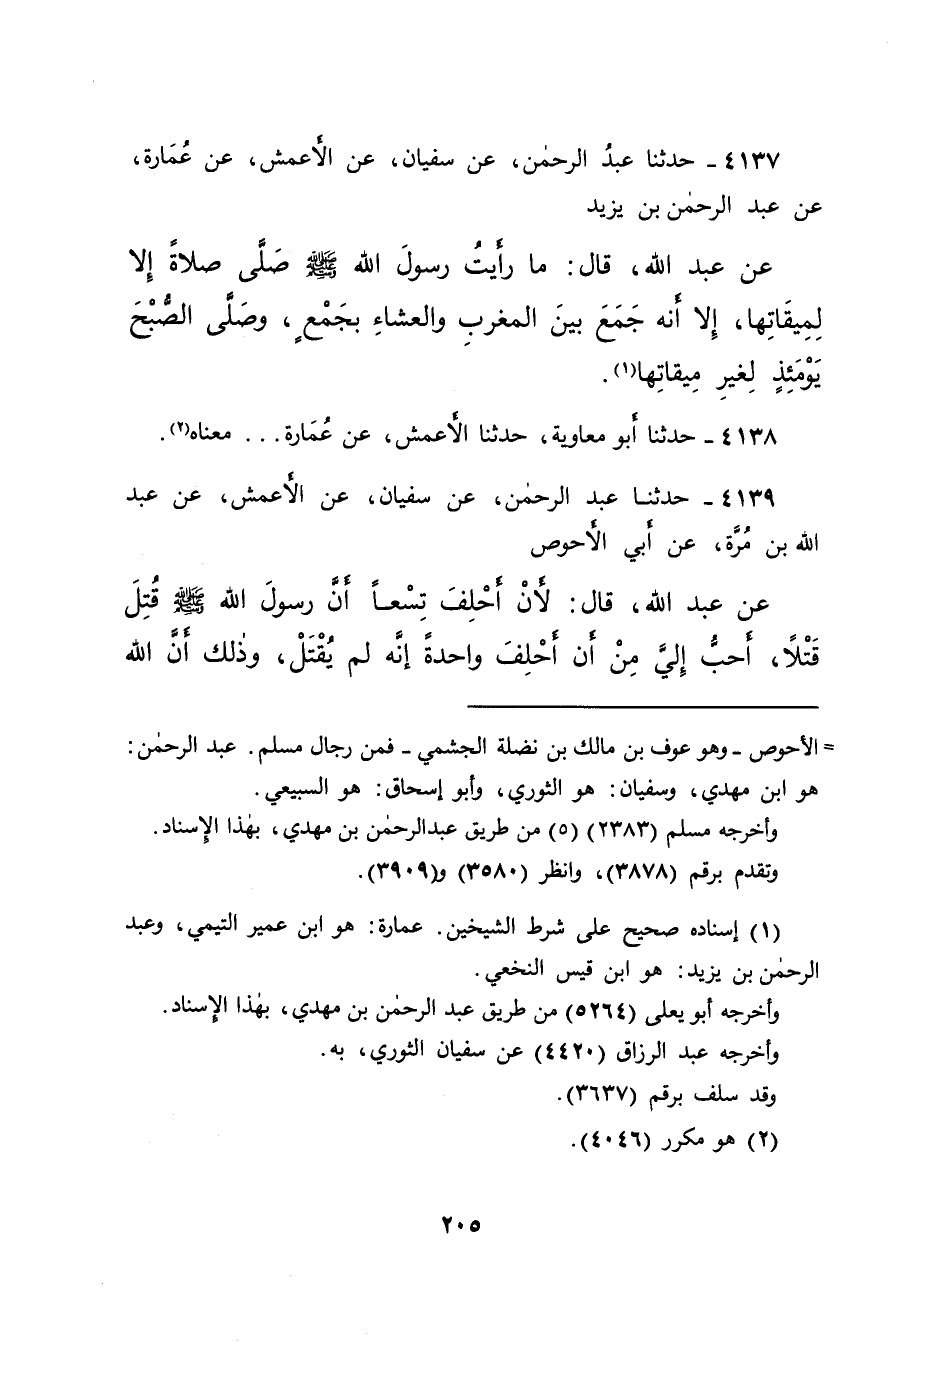 ٤١٣٧ ـ حدثنا عبدُ الرحمٰن، عن سفيان، عن الأَعمش، عن عُمَارة،
عن عبد الرحمٰن بن يزيد
عن عبد الله، قال: ما رأَيتُ رسولَ الله ﷺ صَلَّى صلاةً إِلا
لِمِيقَاتِها، إِلا أَنه جَمَعَ بينَ المغربِ والعشاءِ بجَمْعٍ، وصَلَّى الصُّبْحَ
يَوْمَئِذٍ لِغيرِ مِيقاتِها(١).
٤١٣٨ ـ حدثنا أَبو معاوية، حدثنا الأَعمش، عن عُمَارة... معناه(٢).
٤١٣٩ ـ حدثنا عبد الرحمٰن، عن سفيان، عن الأَعمش، عن عبد
الله بن مُرَّة، عن أَبي الأَحوص
عن عبد الله، قال: لَأَنْ أَحْلِفَ تِسْعاً أَنَّ رسولَ الله ﷺ قُتِلَ
قَتْلاً، أَحبُّ إِليَّ مِنْ أَن أَحْلِفَ واحدةً إِنَّه لم يُقْتَلْ، وذٰلك أَنَّ الله
= الأحوص ـ وهو عوف بن مالك بن نضلة الجشمي ـ فمن رجال مسلم. عبد الرحمٰن:
هو ابن مهدي، وسفيان: هو الثوري، وأبو إسحاق: هو السبيعي.
وأخرجه مسلم (٢٣٨٣) (٥) من طريق عبدالرحمٰن بن مهدي، بهٰذا الإسناد.
وتقدم برقم (٣٨٧٨)، وانظر (٣٥٨٠) و(٣٩٠٩).
(١) إسناده صحيح على شرط الشيخين. عمارة: هو ابن عمير التيمي، وعبد
الرحمٰن بن يزيد: هو ابن قيس النخعي.
وأخرجه أبو يعلى (٥٢٦٤) من طريق عبد الرحمٰن بن مهدي، بهٰذا الإسناد.
وأخرجه عبد الرزاق (٤٤٢٠) عن سفيان الثوري، به.
وقد سلف برقم (٣٦٣٧).
(٢) هو مكرر (٤٠٤٦).
٢٠٥